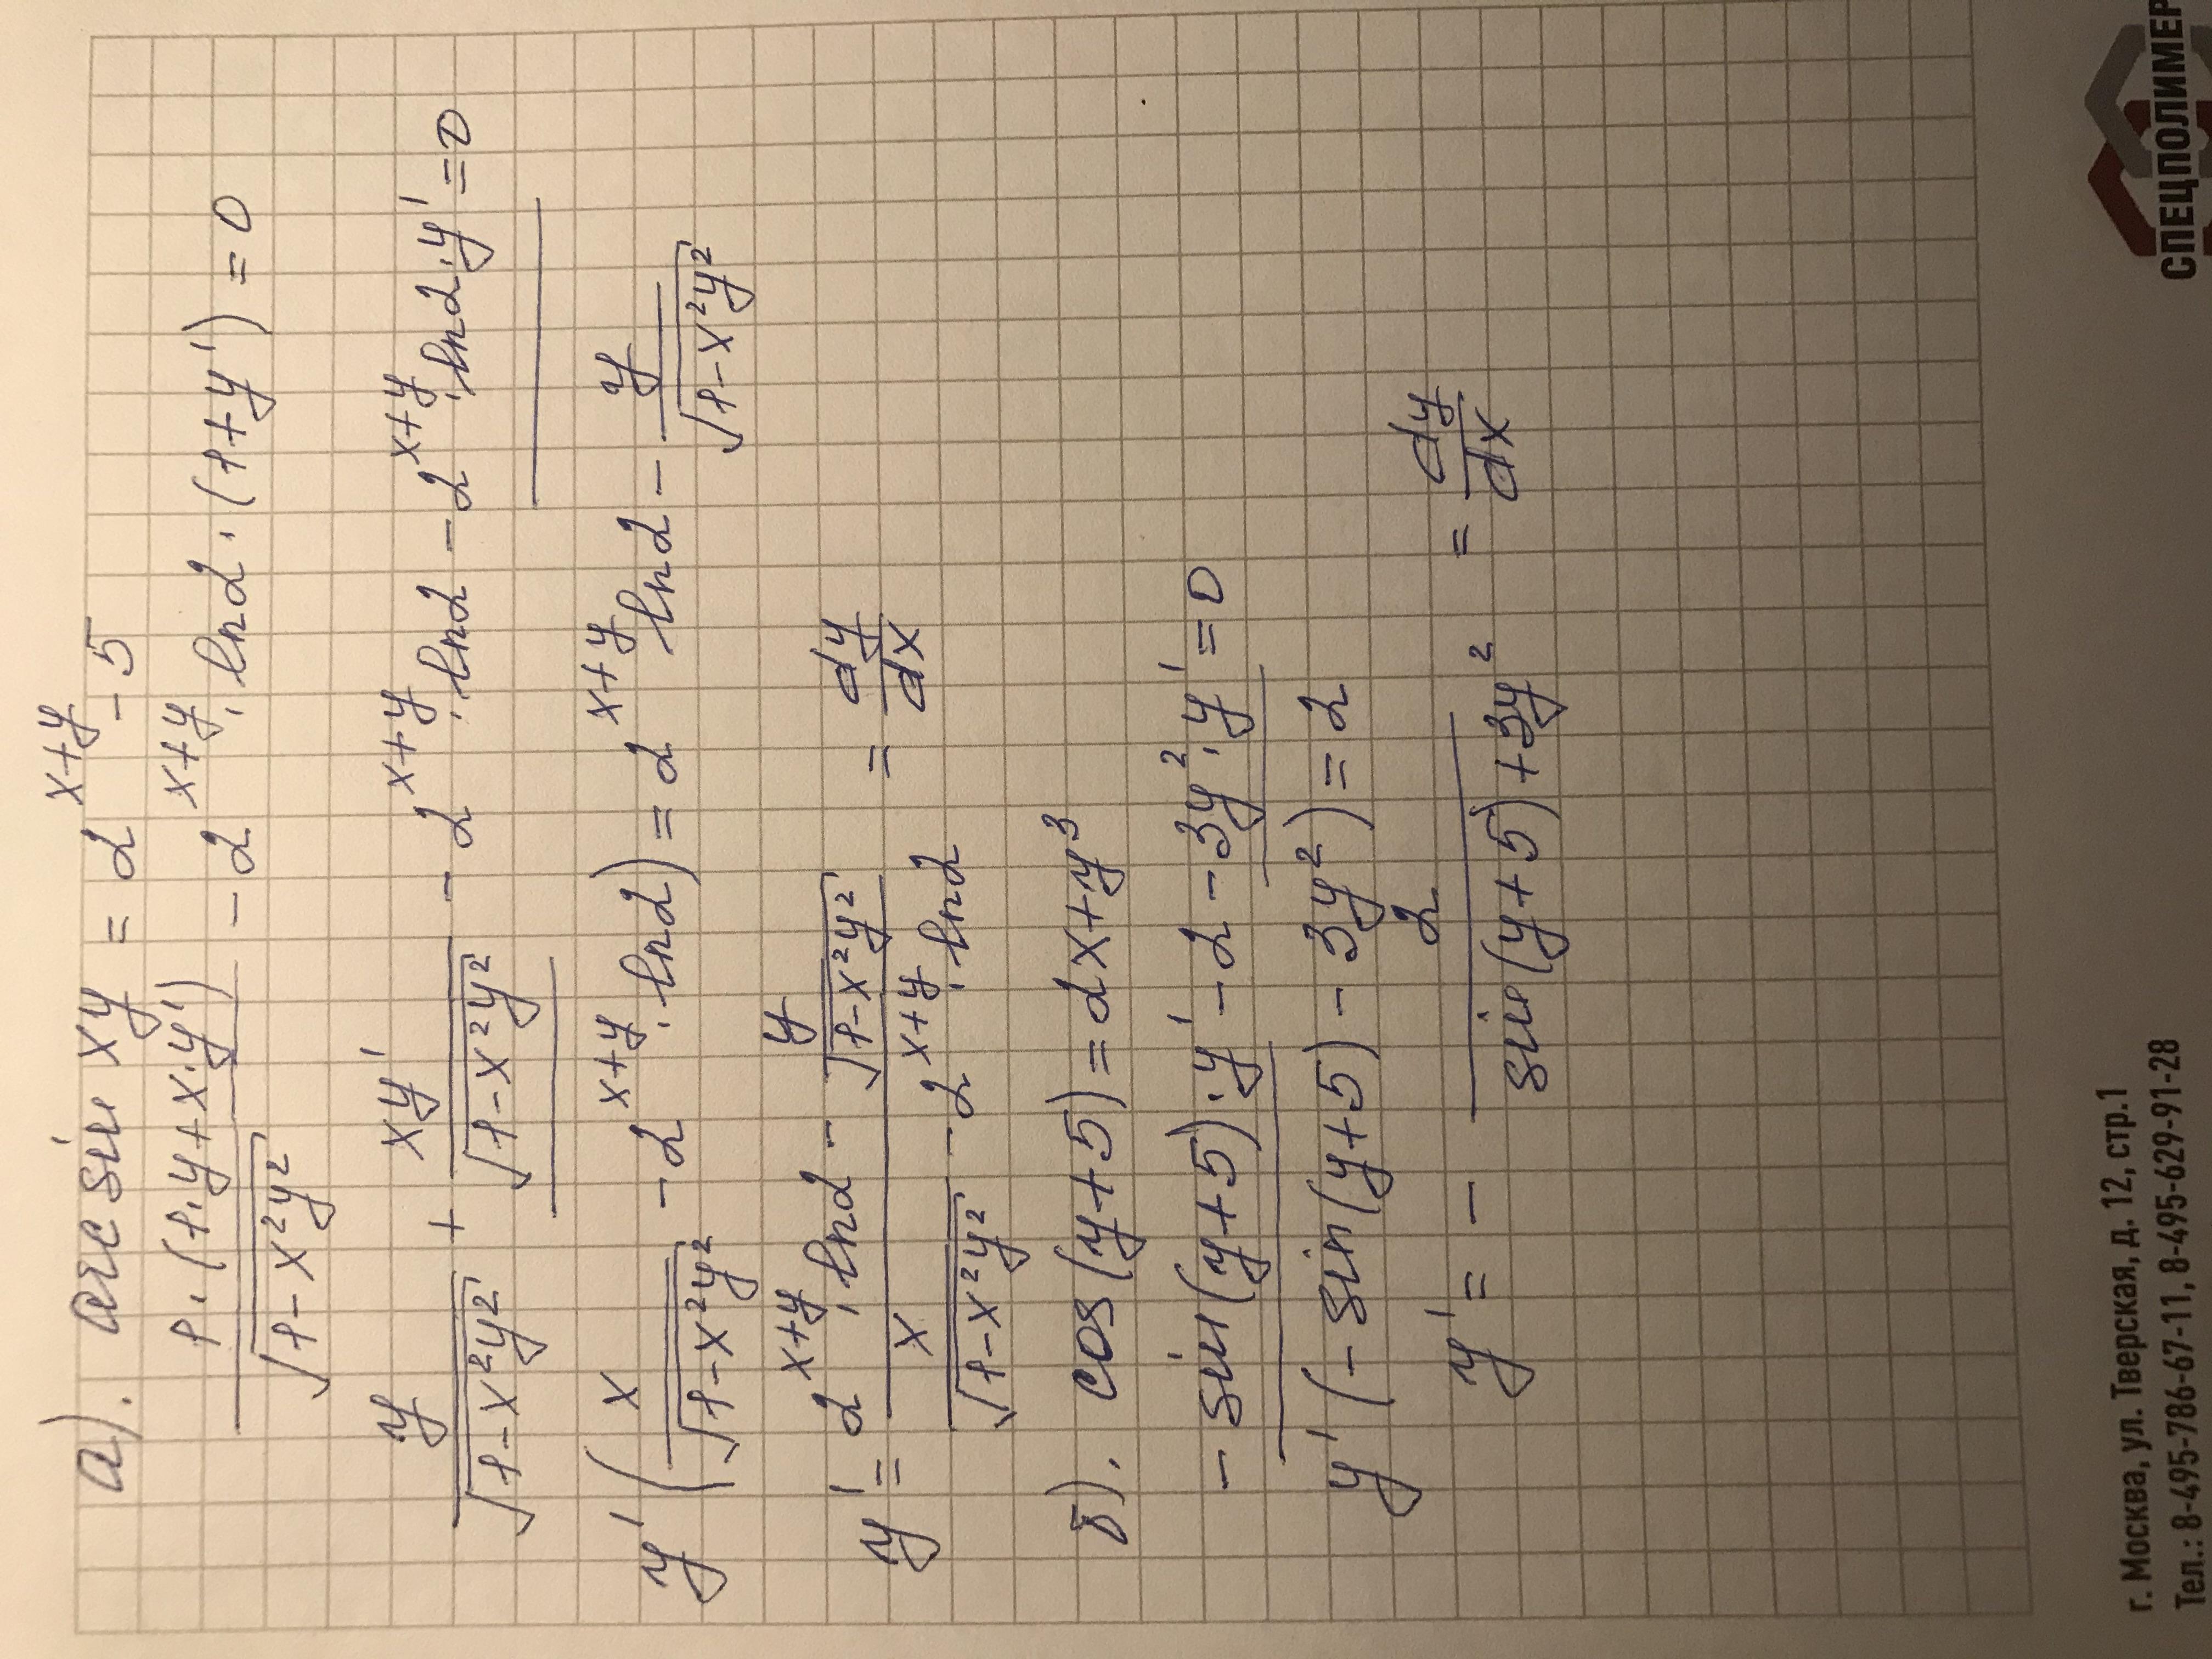 а). arcsin xy = 2^{x+y} - 5
\frac{1·(1·y+x·y')}{\sqrt{1-x²y²}} - 2^{x+y}·ln2·(1+y') = 0
\frac{y}{\sqrt{1-x²y²}} + \frac{xy'}{\sqrt{1-x²y²}} - 2^{x+y}·ln2 - 2^{x+y}·ln2·y' = 0
y'(\frac{x}{\sqrt{1-x²y²}} - 2^{x+y}·ln2) = 2^{x+y} ln2 - \frac{y}{\sqrt{1-x²y²}}
y' = \frac{2^{x+y}·ln2 - \frac{y}{\sqrt{1-x²y²}}}{\frac{x}{\sqrt{1-x²y²}} - 2^{x+y}·ln2} = \frac{dy}{dx}
б). cos(y+5) = 2x+y³
- sin(y+5)·y' - 2 - 3y²·y' = 0
y'(- sin(y+5) - 3y²) = 2
y' = - \frac{2}{sin(y+5)+3y²} = \frac{dy}{dx}
СПЕЦПОЛИМЕР
г. Москва, ул. Тверская, д. 12, стр.1
Тел.: 8-495-786-67-11, 8-495-629-91-28